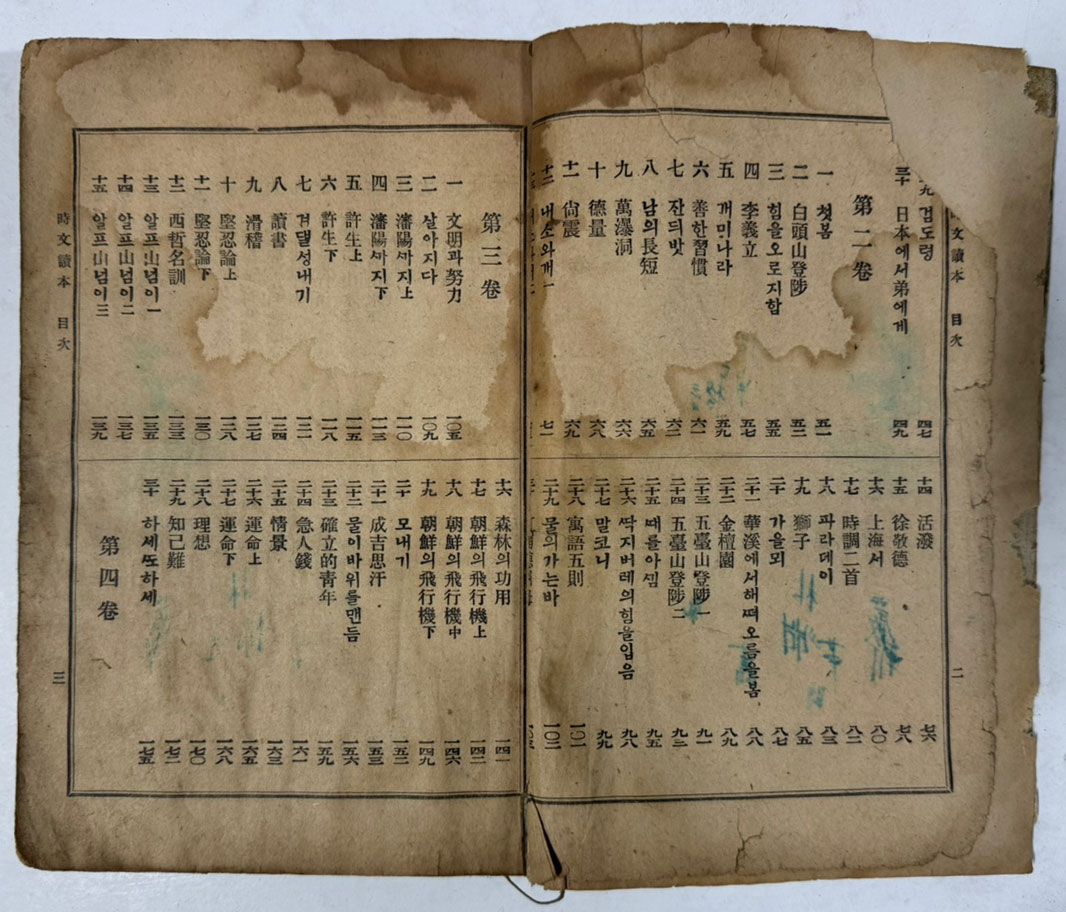 文讀本 目次
검도령 四七
三十 日本에서弟에게 四九
第二卷
一 첫봄 五一
二 白頭山登陟 五二
三 힘을오로지함 五五
四 李義立 五七
五 개미나라 五九
六 善한習慣 六一
七 잔듸밧 六二
八 남의長短 六五
九 萬瀑洞 六六
十 德量 六八
十一 尙震 六九
十二 내소와개一 七一
十四 活潑 七六
十五 徐敬德 七八
十六 上海서 八〇
十七 時調二首 八二
十八 파라데이 八三
十九 獅子 八五
二十 가을뫼 八七
二十一 華溪에서해떠오름을봄 八八
二十二 金檀園 八九
二十三 五臺山登陟一 九一
二十四 五臺山登陟二 九三
二十五 때를아낌 九五
二十六 딱지버레의힘을입음 九八
二十七 말코니 九九
二十八 寓語五則 一〇一
二十九 물의가는바 一〇二
二
第三卷
一 文明과努力 一〇五
二 살아지다 一〇九
三 瀋陽까지上 一一〇
四 瀋陽까지下 一一三
五 許生上 一一五
六 許生下 一一八
七 겨댈성내기 一二一
八 讀書 一二四
九 滑稽 一二七
十 堅忍論上 一二八
十一 堅忍論下 一三〇
十二 西哲名訓 一三三
十三 알프山넘이一 一三五
十四 알프山넘이二 一三七
十五 알프山넘이三 一三九
十六 森林의功用 一四一
十七 朝鮮의飛行機上 一四二
十八 朝鮮의飛行機中 一四六
十九 朝鮮의飛行機下 一四九
二十 모내기 一五二
二十一 成吉思汗 一五三
二十二 물이바위를맨듬 一五六
二十三 確立的靑年 一五九
二十四 急人錢 一六一
二十五 情景 一六三
二十六 運命上 一六五
二十七 運命下 一六八
二十八 理想 一七〇
二十九 知己難 一七二
三十 하세또하세 一七五
第四卷
時文讀本 目次
三